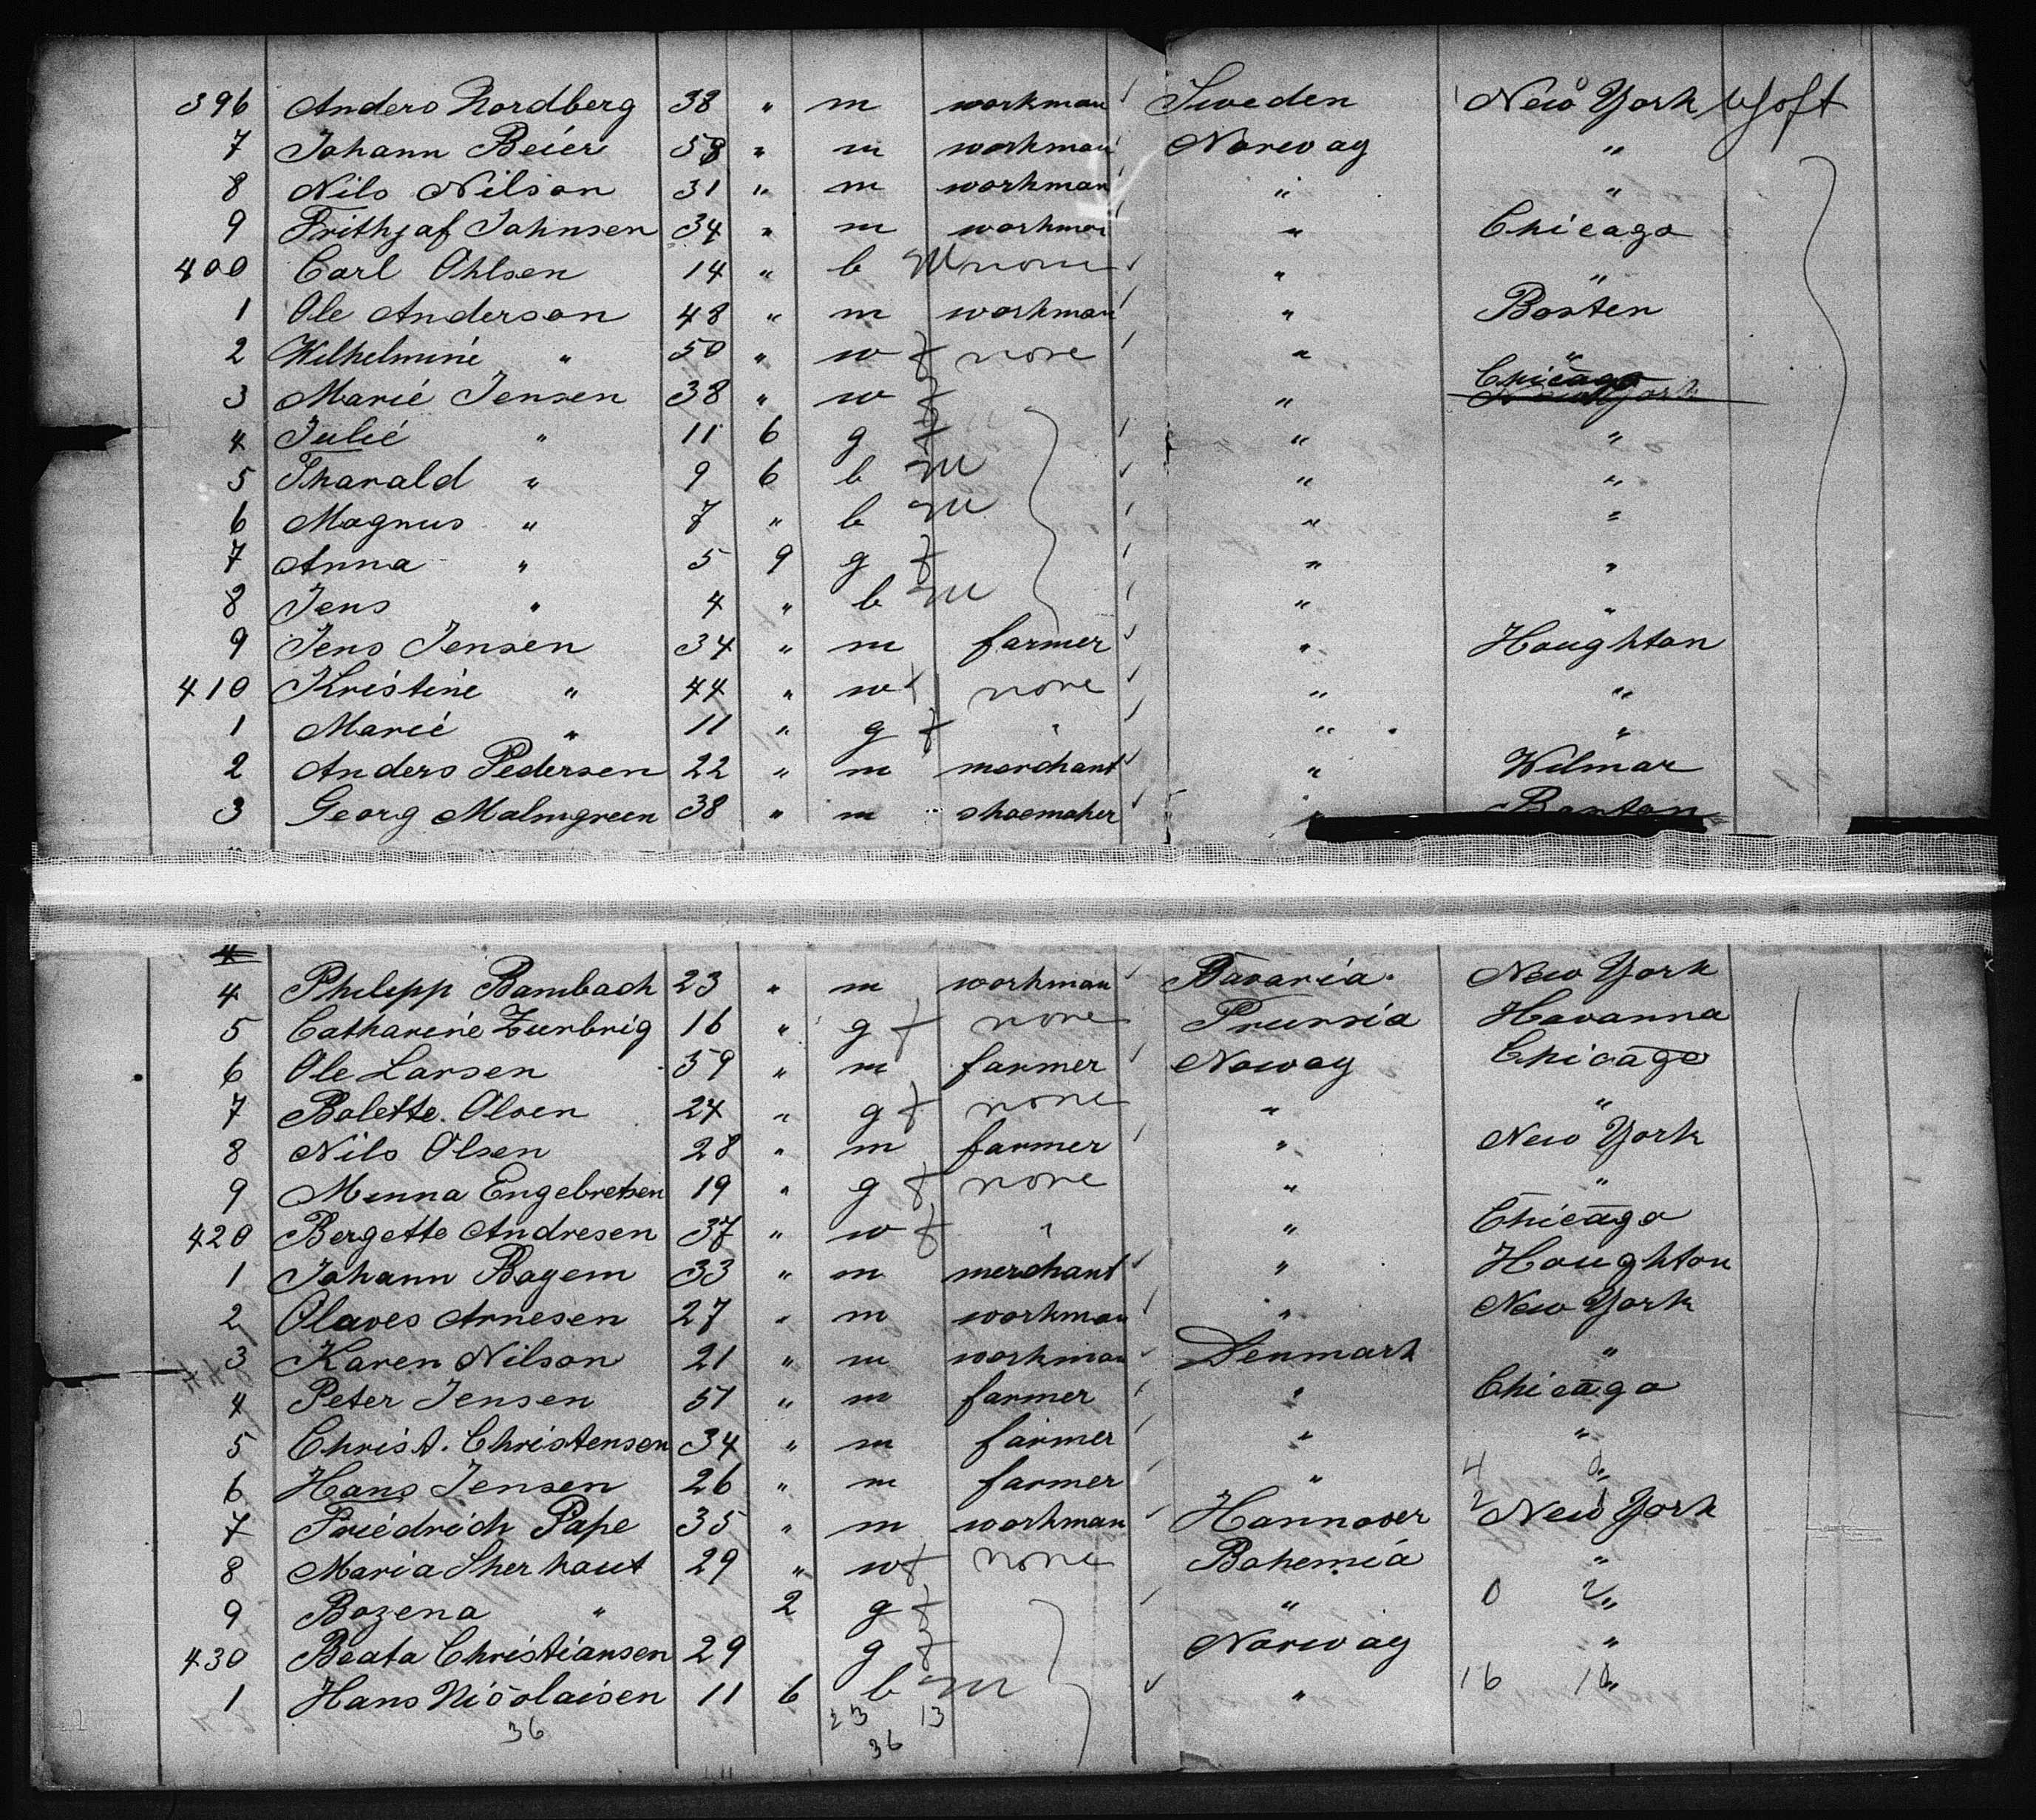 396 Anders Nordberg 38 " m workman Sweden New York
7 Johann Beier 58 " m workman Norway "
8 Nils Nilson 31 " m workman " "
9 Frithjaf Johnsen 34 " m workman " Chicago
400 Carl Ohlsen 14 " b M none " "
1 Ole Anderson 48 " m workman " Bosten
2 Wilhelmine " 50 " w f none " "
3 Marie Jensen 38 " w f " Chicago
4 Julie " 11 6 g f " "
5 Tharald " 9 6 b m " "
6 Magnus " 7 " b m " "
7 Anna " 5 9 g f " "
8 Jens " 4 " b m " "
9 Jens Jensen 34 " m farmer " Houghton
410 Kristine " 44 " w f none " "
1 Marie " 11 " g f " " "
2 Anders Pedersen 22 " m merchant " Wilmar
3 Georg Malmgreen 38 " m shoemaker " Bonton
4
4 Philipp Bambach 23 " m workman Bavaria. New York
5 Catharine Zurbrig 16 " g f none Prussia Havanna
6 Ole Larsen 59 " m farmer Noway Chicago
7 Bolette Olsen 24 " g f none " "
8 Nils Olsen 28 " m farmer " New York
9 Minna Engebretsen 19 " g f none " "
420 Bergette Andresen 37 " w f " " Chicago
1 Johann Bagem 33 " m merchant " Houghton
2 Olaves Arnesen 27 " m workman " New York
3 Karen Nilson 21 " m workman Denmark "
4 Peter Jensen 51 " m farmer " Chicago
5 Christ. Christensen 34 " m farmer " "
6 Hans Jensen 26 " m farmer " 4 0 "
7 Friedrich Pape 35 " m workman Hannover 2 1 New York
8 Maria Sherhaut 29 " w f none Bohemia "
9 Bozena " 2 g f " 0 2 "
430 Beata Christiansen 29 g f Norway "
1 Hans Nicolaisen 11 6 b m " 16 10 "
36 23 13
36